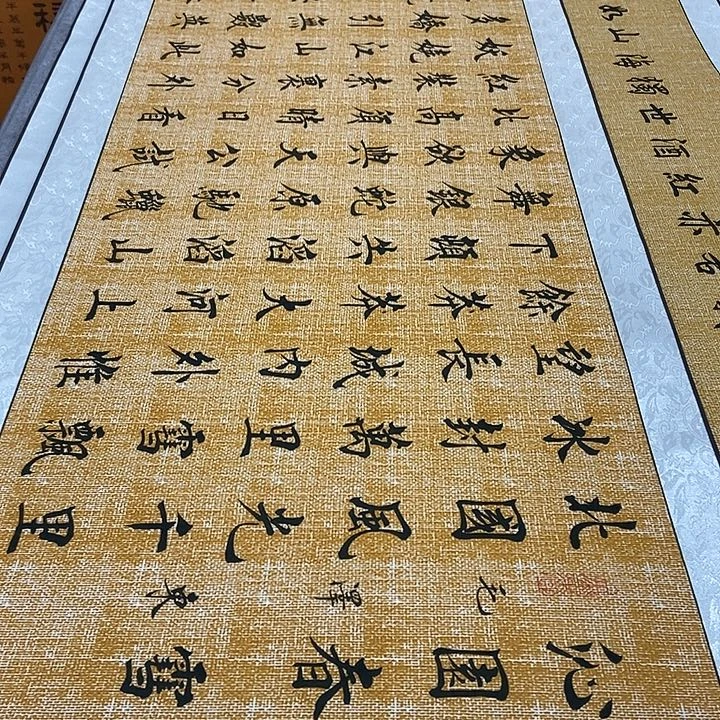 沁園春雪
毛澤東
北國風光千里
冰封萬里雪飄
望長城内外惟
餘莽莽大河上
下頓失滔滔山
舞銀蛇原馳蠟
象欲與天公試
比高須晴日看
紅裝素裹分外
妖嬈江山如此
多嬌引無數英